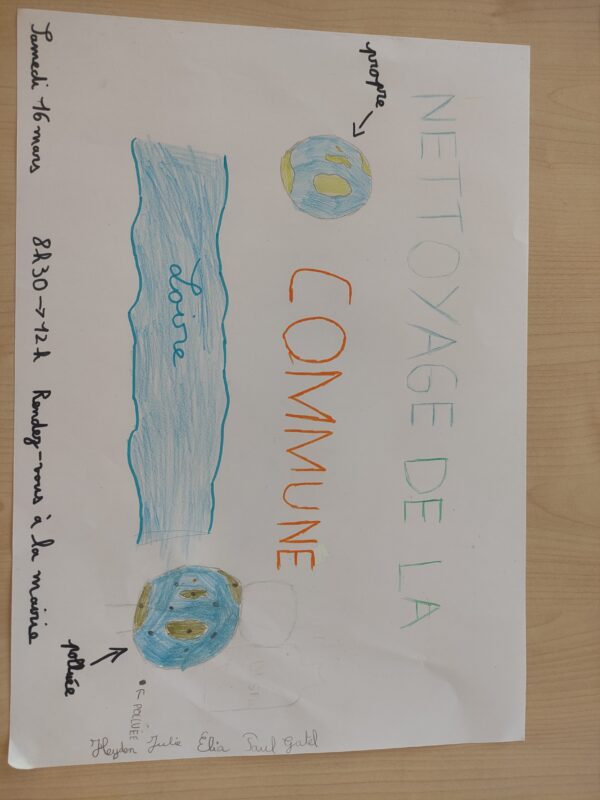 NETTOYAGE DE LA
COMMUNE
propre
Loire
polluée
• = POLLUÉE
Samedi 16 mars 8h30 → 12h Rendez-vous à la mairie
Julie Élia Paul Gatel